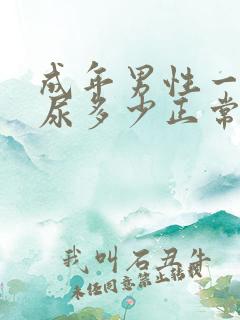 成年男性一
尿多少正常
我叫石丑牛
未经同意禁止转载